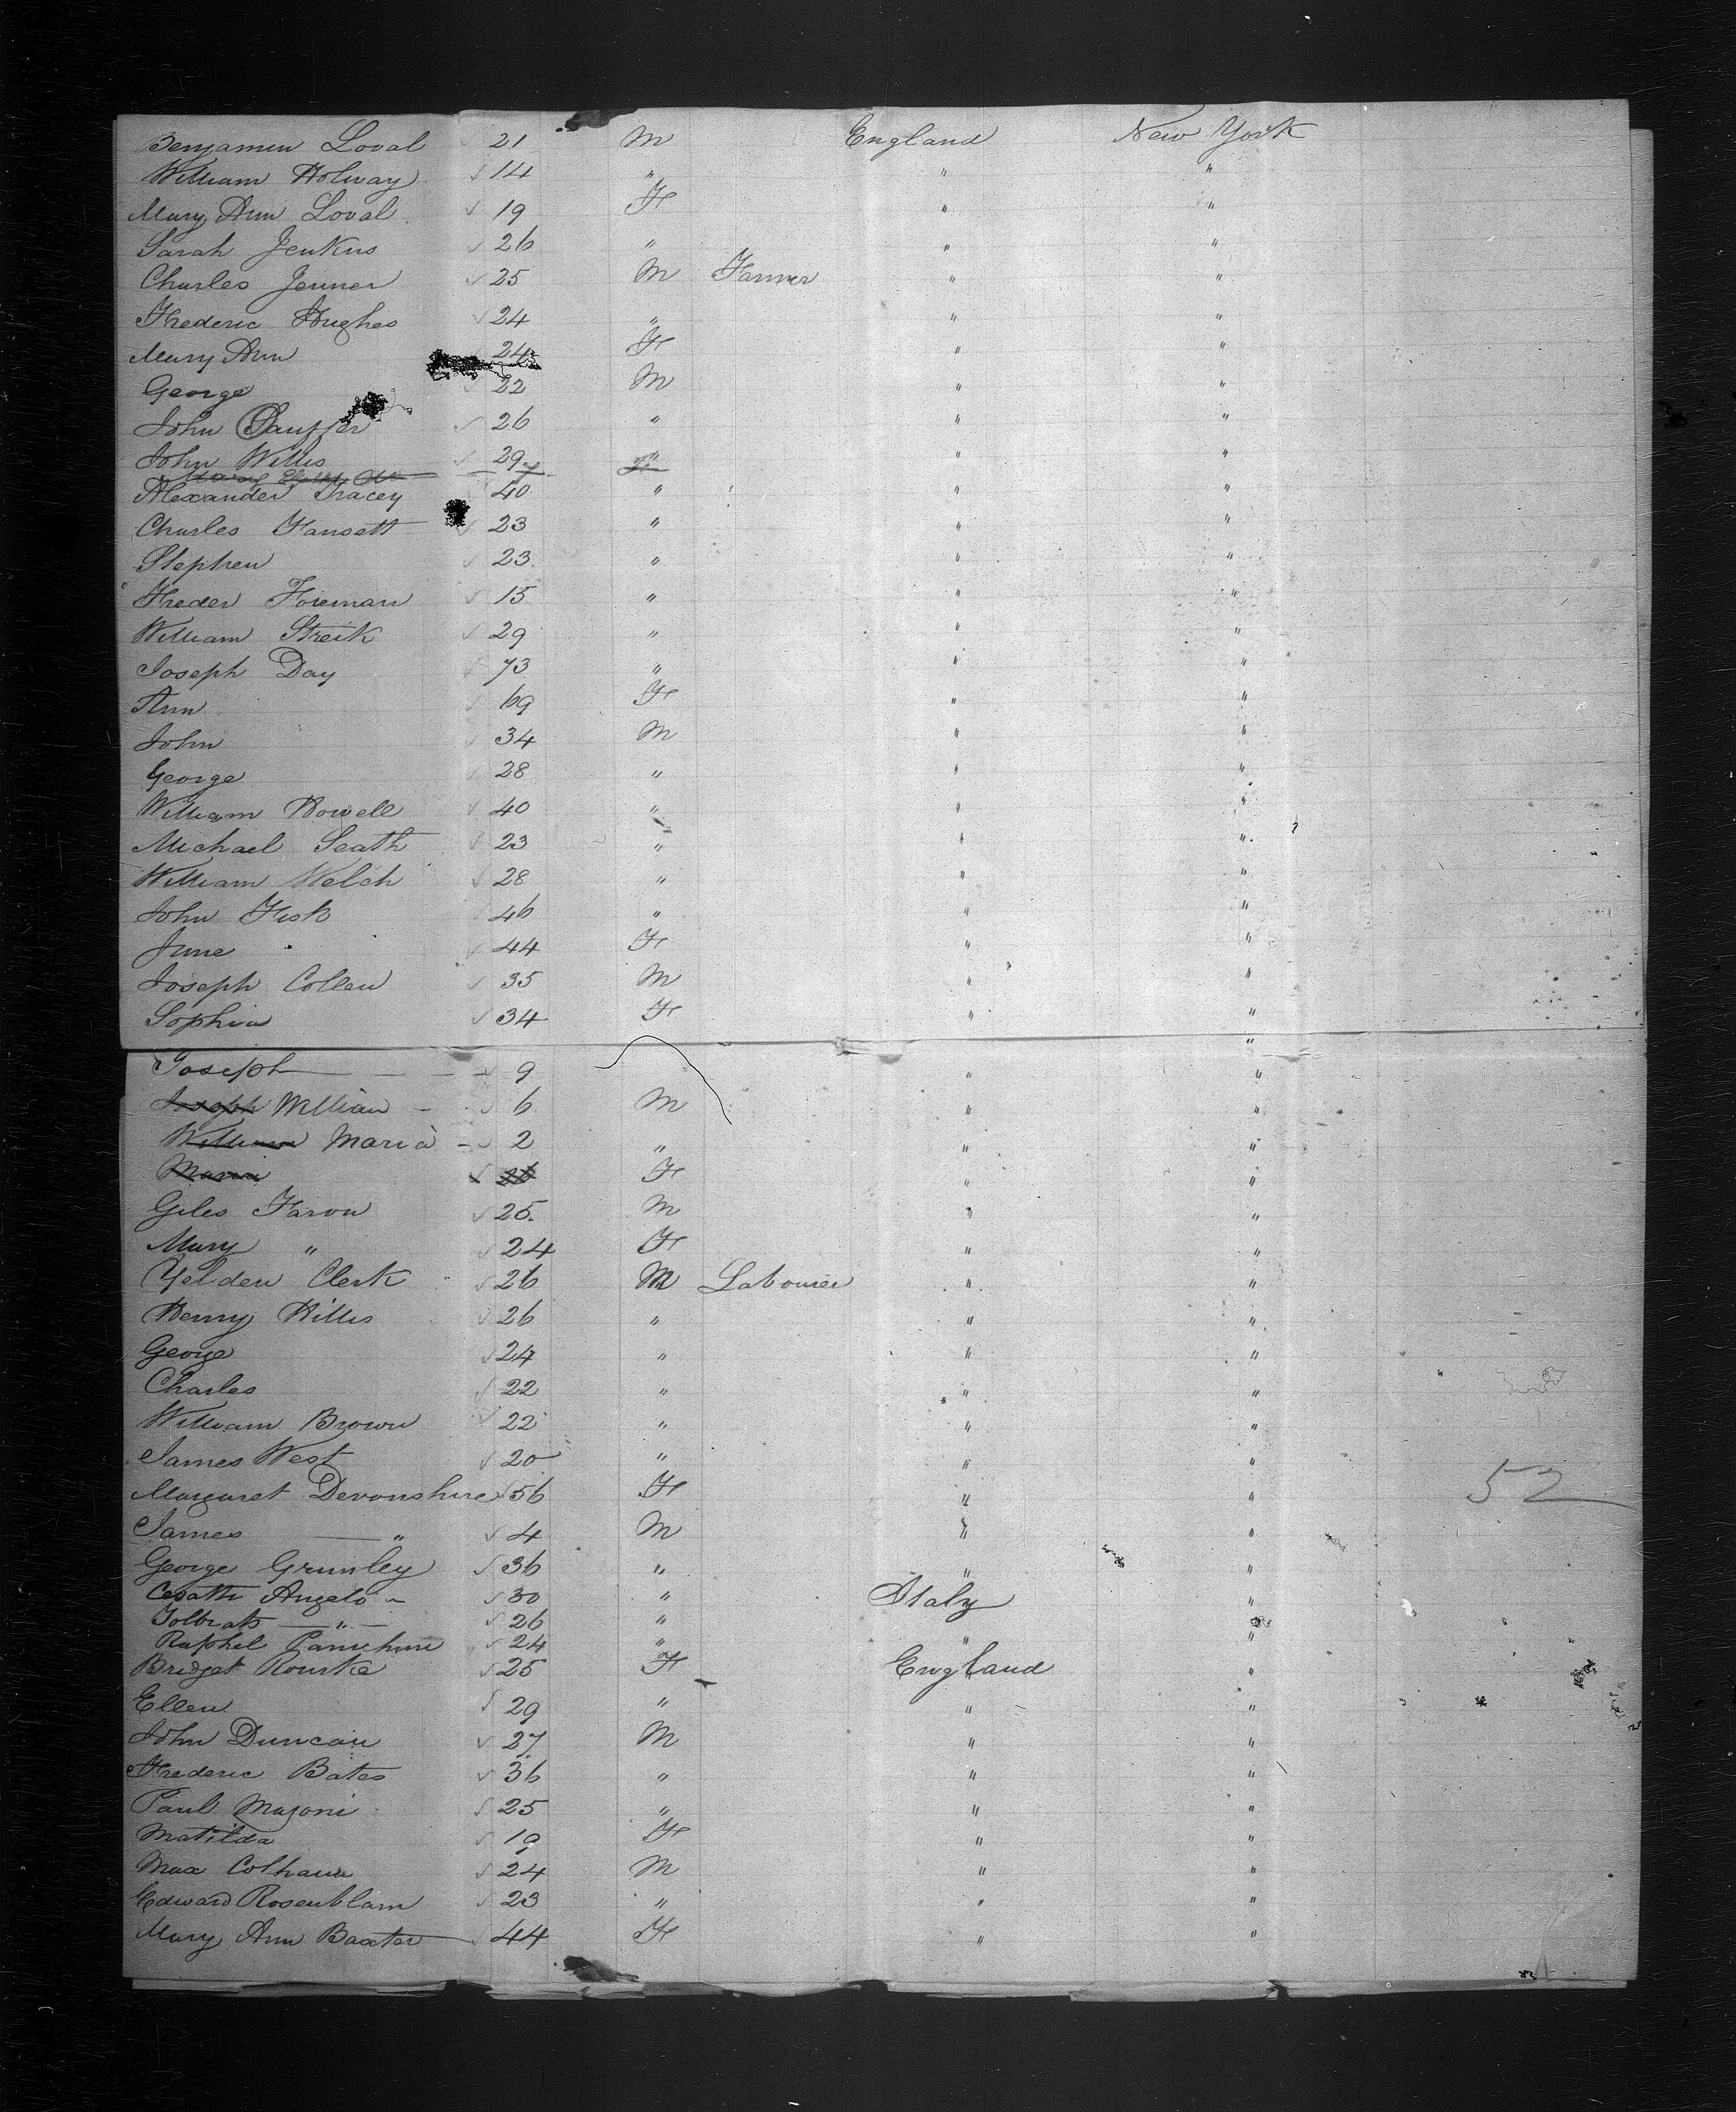 Benjamin Loval 21 M England New York
William Holway 14 " " "
Mary Ann Loval 19 F " "
Sarah Jenkins 26 " " "
Charles Jenner 25 M Farmer " "
Frederic Hughes 24 " " "
Mary Ann 24 F " "
George 22 M " "
John 26 " " "
John Willis 29 " " "
Alexander Tracey 40 " " "
Charles Fansett 23 " " "
Stephen 23 " " "
Freder Foreman 15 " " "
William Streik 29 " " "
Joseph Day 73 " " "
Ann 69 F " "
John 34 M " "
George 28 " " "
William Howell 40 " " "
Michael Seath 23 " " "
William Welch 28 " " "
John Fisk 46 " " "
June 44 F " "
Joseph Collen 35 M " "
Sophia 34 F " "
Joseph 9 " "
Joseph William 6 M " "
William Maria 2 " " "
Maria F " "
Giles Farow 25 M " "
Mary " 24 F " "
Yelden Clerk 26 M Labourer " "
Henry Hills 26 " " "
George 24 " " "
Charles 22 " " "
William Brown 22 " " "
James West 20 " " "
Margaret Devonshire 56 F " "
52
James " 4 M " "
George Grumley 36 " " "
Angelo 30 " Italy "
" 26 " "
Raphel 24 " " "
Bridget Rourke 25 F England "
Ellen 29 " " "
John Duncan 27 M " "
Frederic Bates 36 " " "
Paul Majoni 25 " " "
Matilda 19 F " "
Max Colhaun 24 M " "
Edward Rosenblam 23 " " "
Mary Ann Baxter 44 F " "